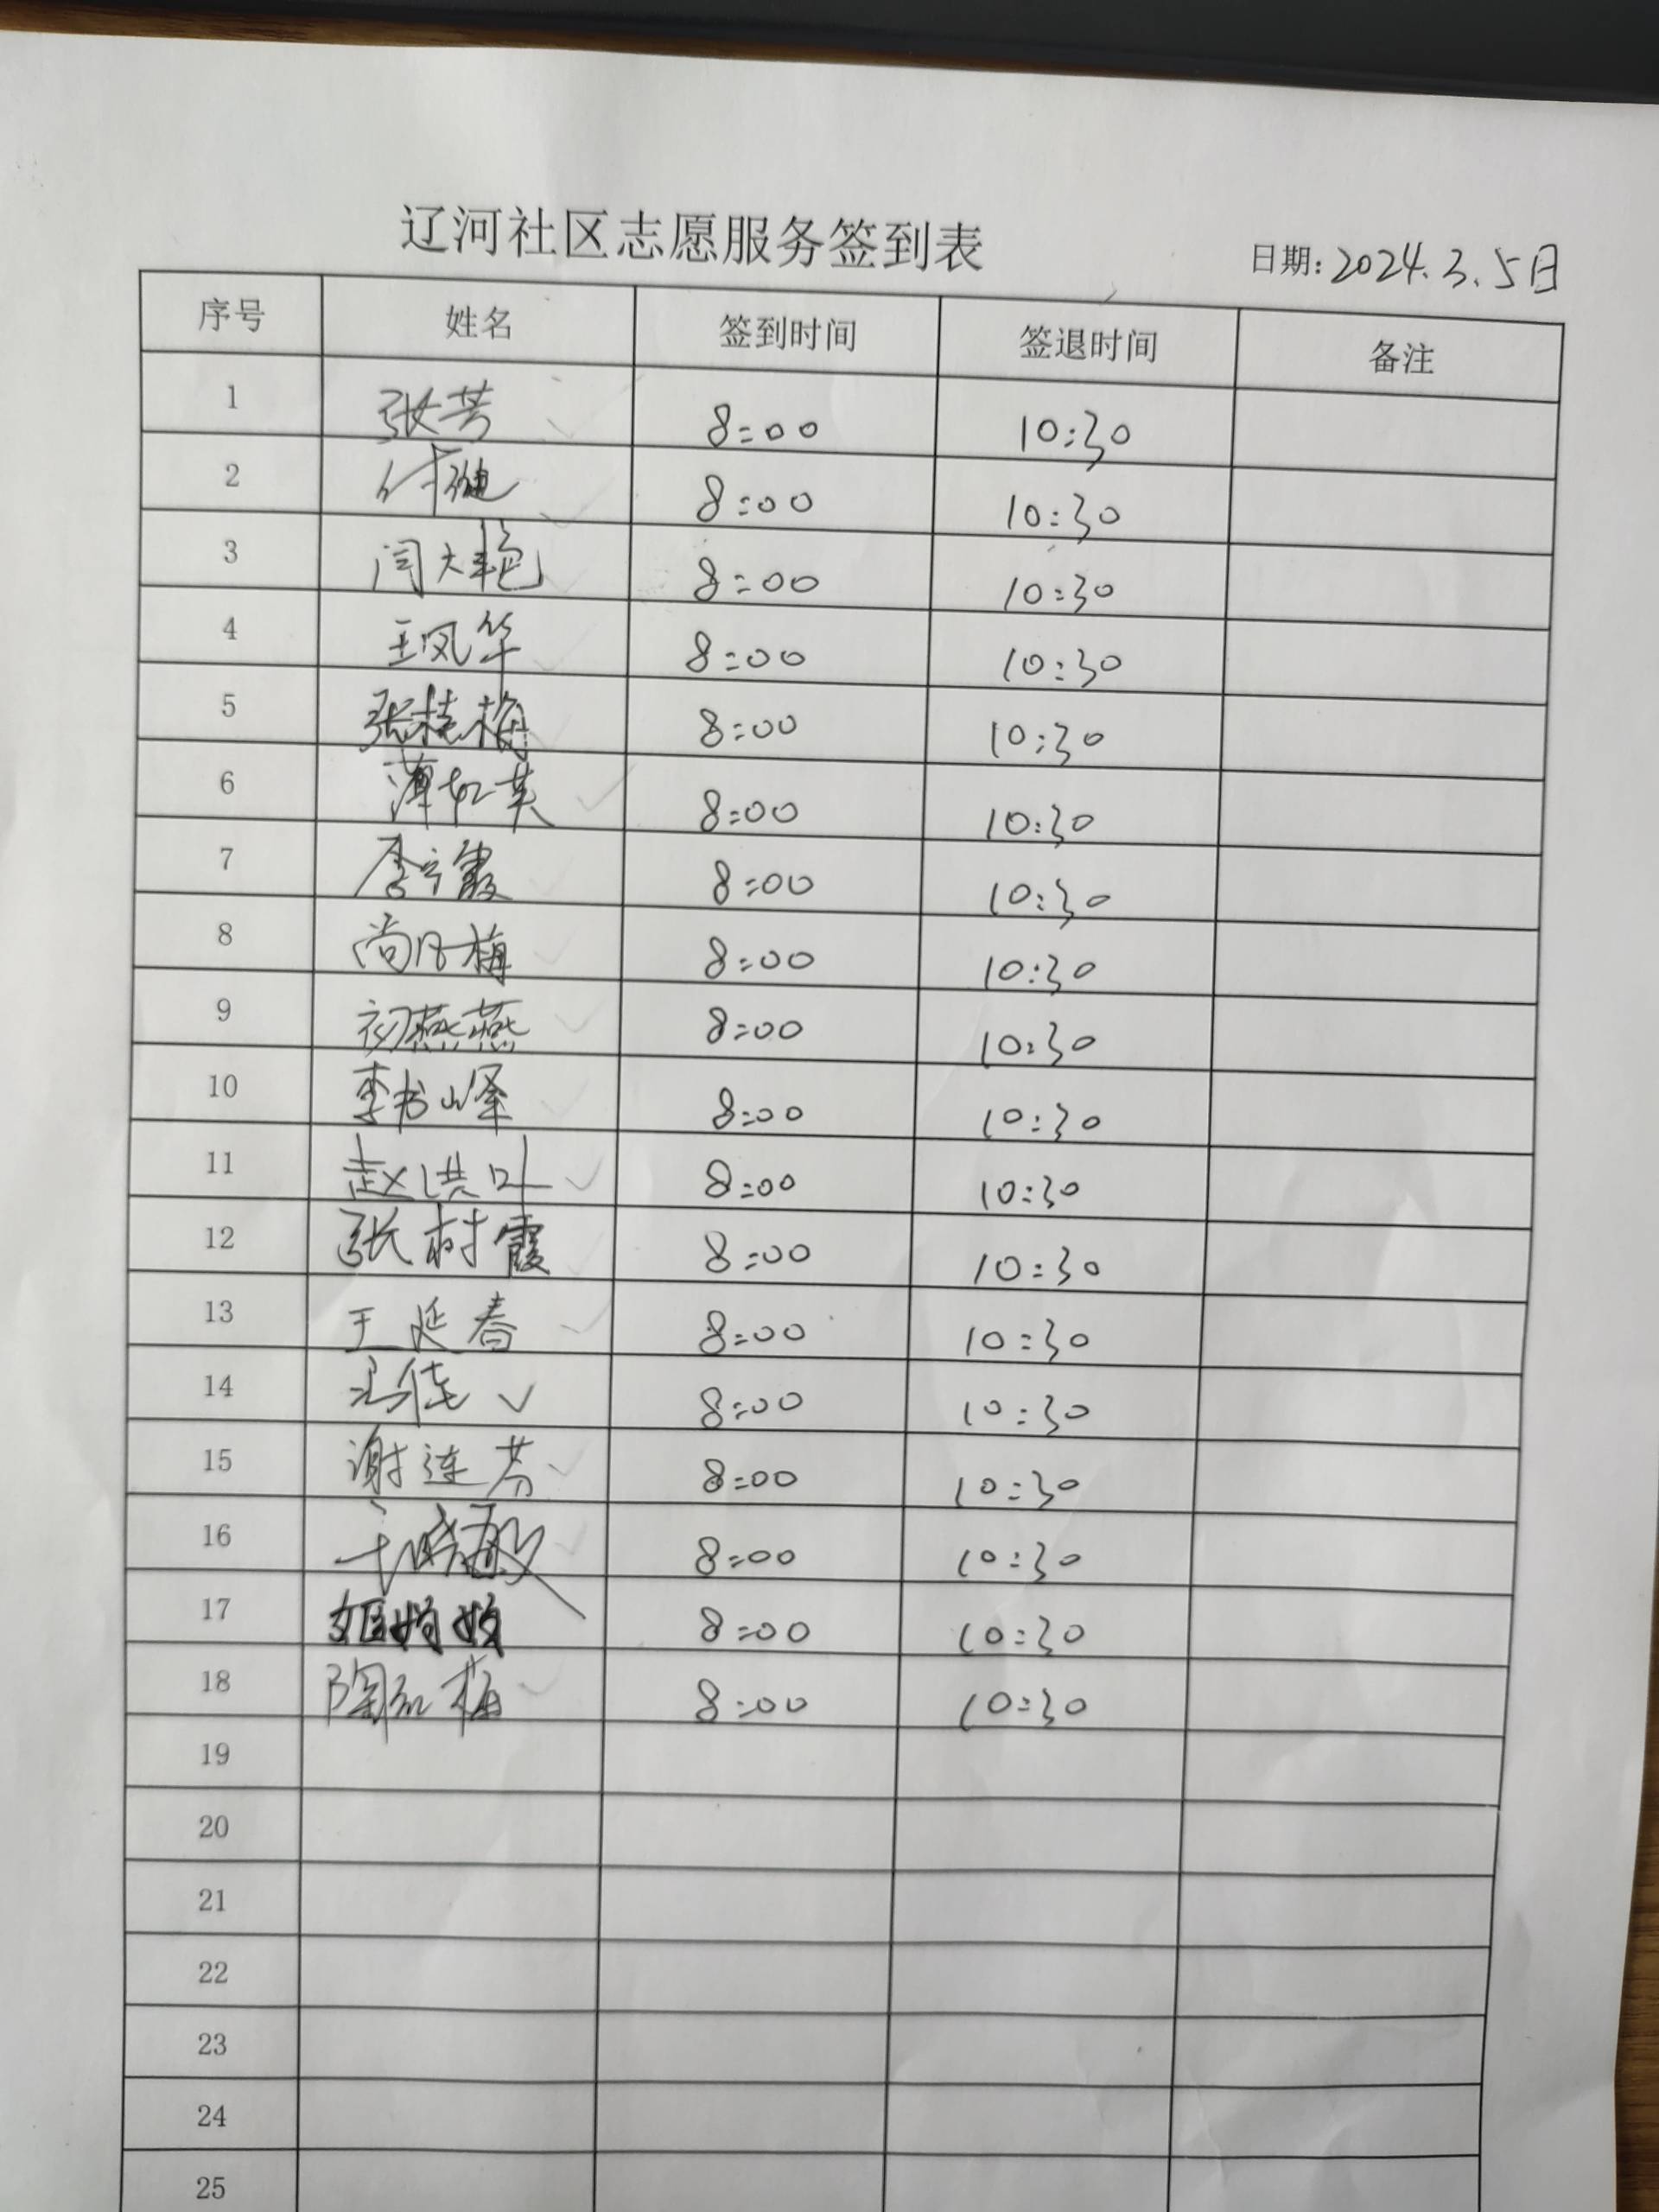 辽河社区志愿服务签到表
日期: 2024.3.5日
序号 姓名 签到时间 签退时间 备注
1 张芳 8:00 10:30
2 付继 8:00 10:30
3 闫大艳 8:00 10:30
4 王凤华 8:00 10:30
5 张桂梅 8:00 10:30
6 薄红英 8:00 10:30
7 李宁霞 8:00 10:30
8 尚凤梅 8:00 10:30
9 初燕燕 8:00 10:30
10 李书峰 8:00 10:30
11 赵洪叶 8:00 10:30
12 张树霞 8:00 10:30
13 王延春 8:00 10:30
14 8:00 10:30
15 谢连芳 8:00 10:30
16 8:00 10:30
17 姬 8:00 10:30
18 陶红梅 8:00 10:30
19
20
21
22
23
24
25